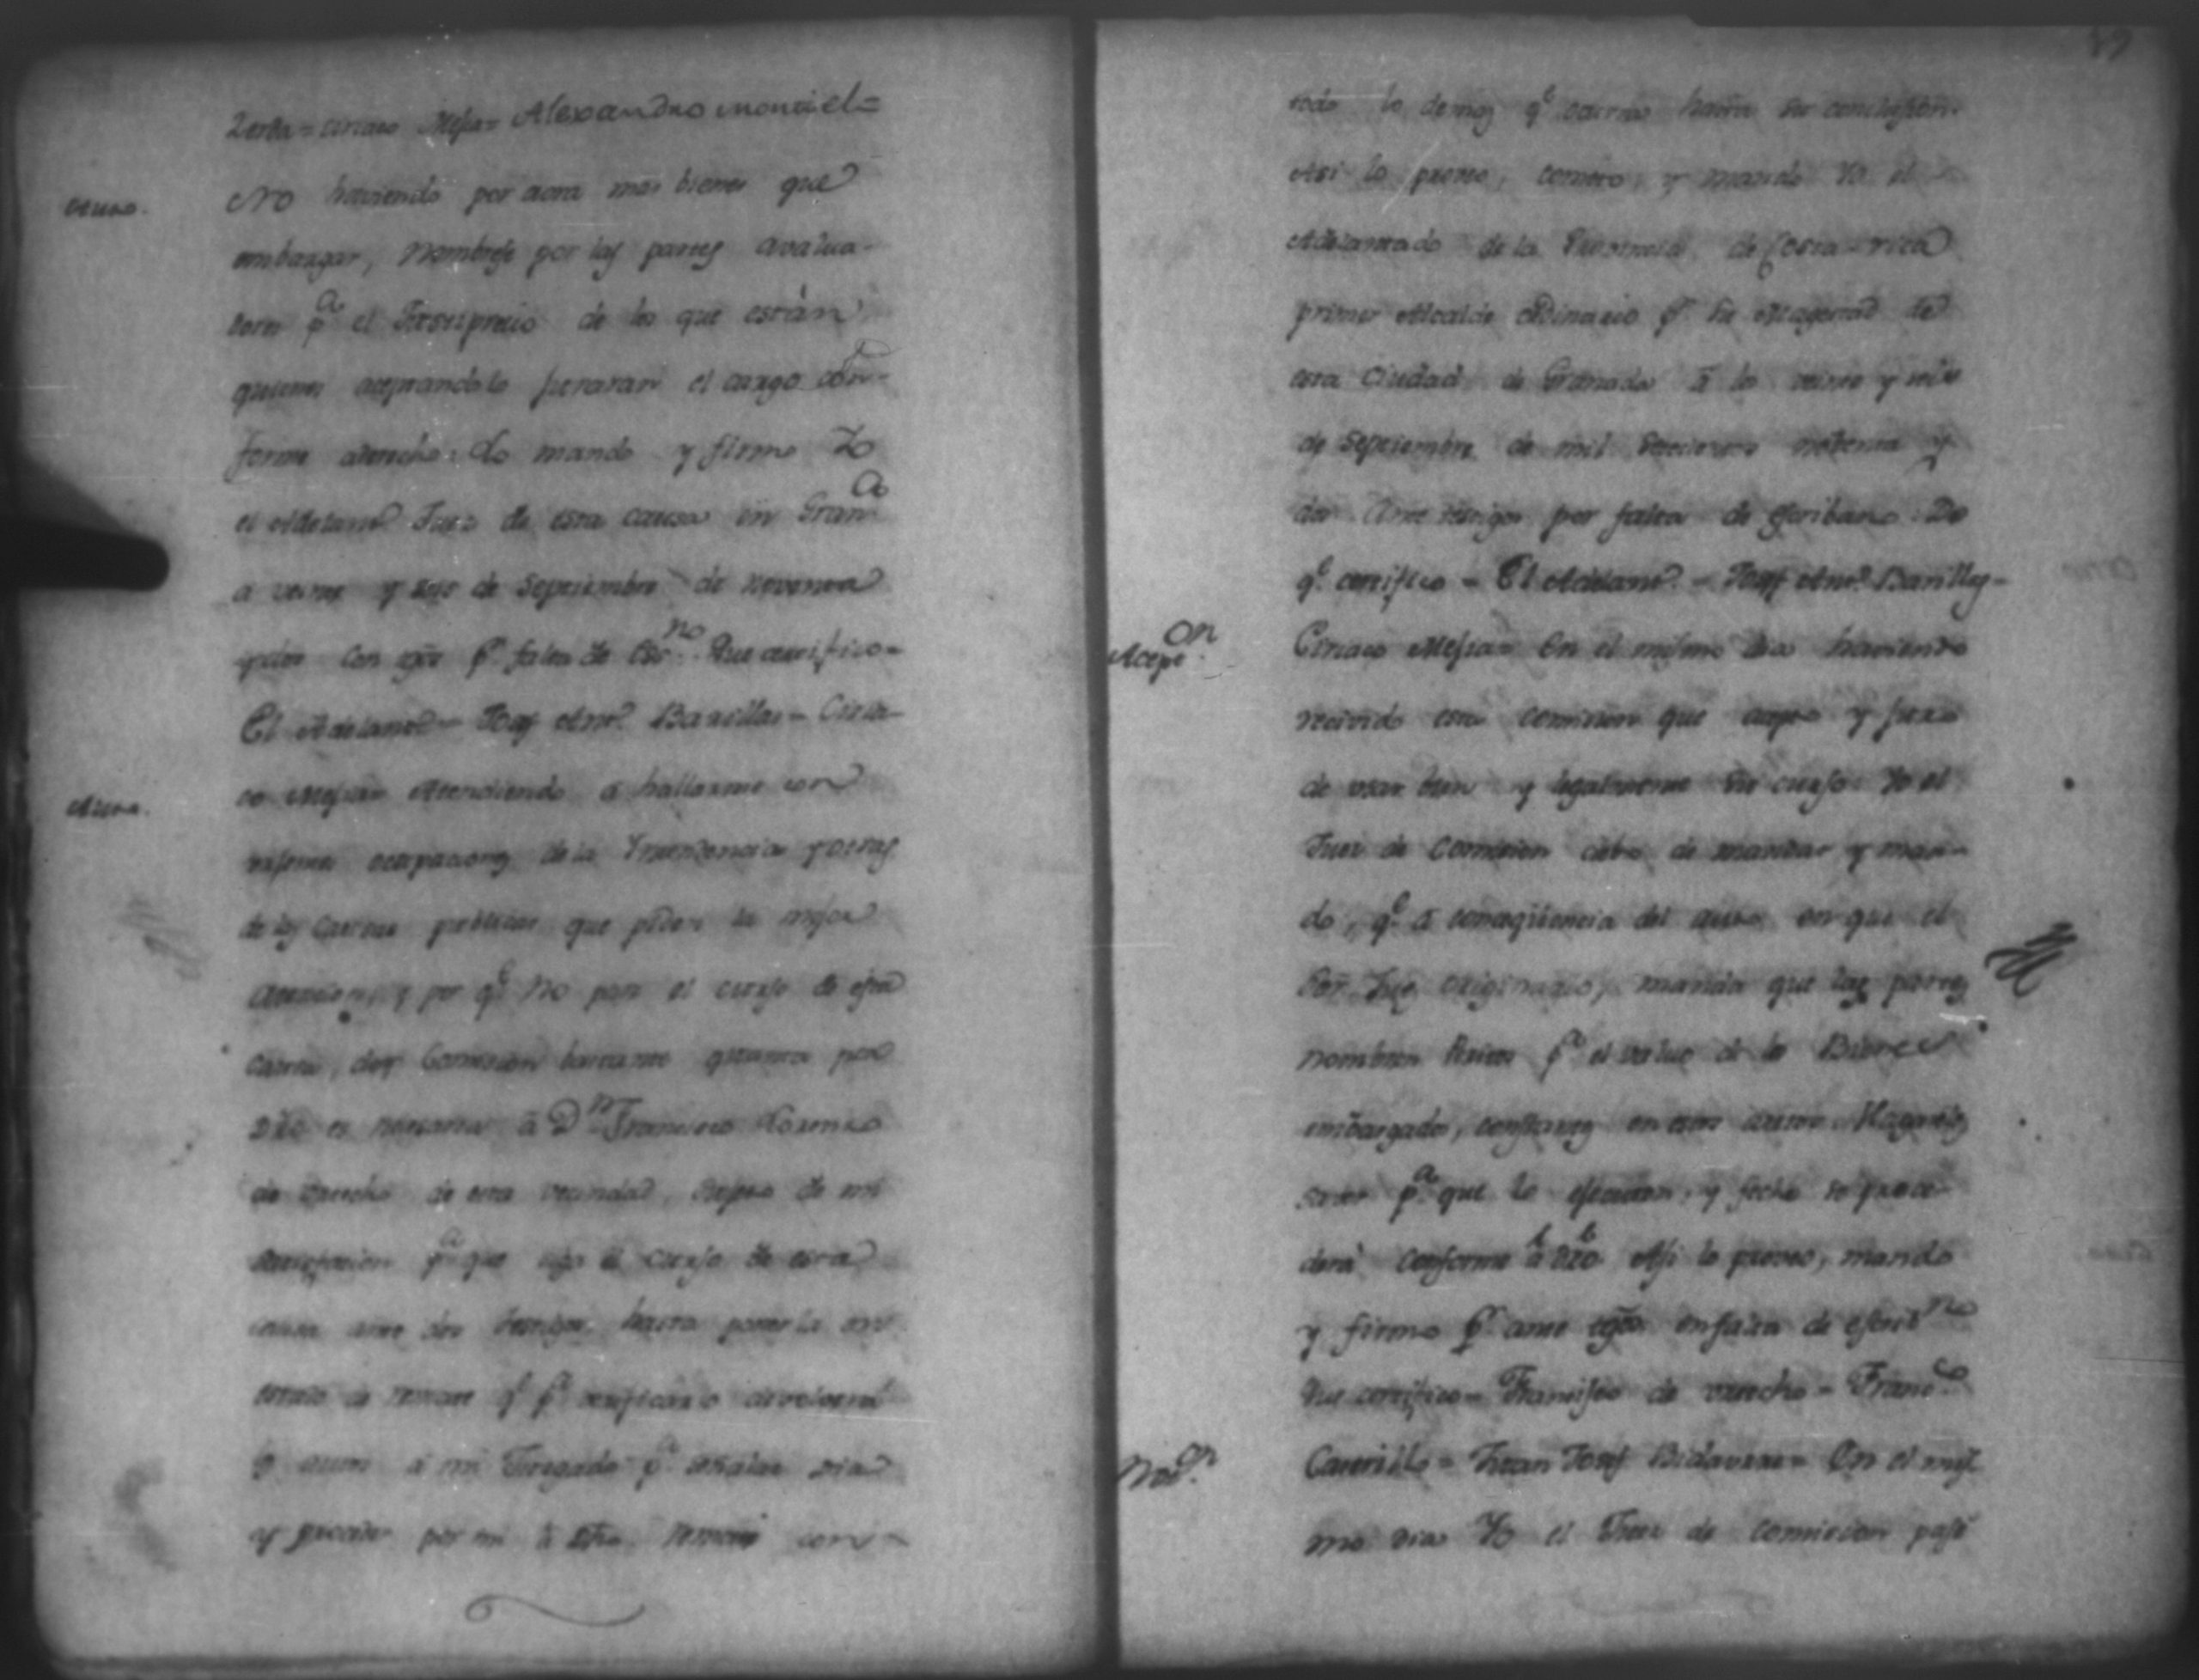 Zerda = ciriaco Mesia = Alexandro Montiel =
Auto.
No haviendo por aora mas bienes que
embargar, nombrese por las partes avalua-
dores pª el de los que están
quienes aceptandolo juraran el cargo con-
forme aderecho. Lo mando y firmo Yo
el Adelantdº Juez de esta causa en Granª
a veinte y seis de Septiembre de noventa
y dos con tgos pr falta de Esnº Que certifico =
El Adelantdº = Josef Antº Barillas = Ciria-
co Mesia = Atendiendo a hallarme con
Auto.
ocupaciones de la Yntendencia y otras
de las Causas publicas que piden la mejor
atencion, y por qe no pare el curso de esta
Causa, doy Comision bastante quanta por
dro es necesaria â Dn Francisco Lorenzo
de Varecha de esta vecindad, de mi
pª que siga el curso de esta
causa ante dos testigos hasta ponerla en
estado de remate qe pª verificarlo devolverá
à mi Juzgado pª señalar dia
y proceder por mi â dho remate con
todo lo demas qe ocurra hasta su conclusion.
Asi lo proveo, cometo, y mando Yo el
Adelantado de la Provincia de Costa-rica
primer Alcalde ordinario pr Su Magestad de
esta Ciudad de Granada â los veinte y seis
de Septiembre de mil setecientos nobenta y
dos Ante testigos por falta de escribano De
qe certifico = El Adelantdº = Josef Antº Barillas =
Acepon.
Ciriaco Mesia = En el mismo dia haviendo
recivido esta comision que acepto y juro
de usar bien y legalmente su curso Yo el
Juez de Comision debo de mandar y man-
do, qe â conseqüencia del auto en que el
Sor Juez originario, manda que las partes
nombren Peritos pª el valuo de los Bienes
embargados, constantes en estos autos. Hagaseles
saver pª que lo executen, y fecho se proce-
derá conforme â dro Assi lo proveo, mando
y firmo pr ante tgos enfalta de escribno
Que certifico = Francisco de varecha = Francº
Castrillo = Juan Josef Bidaurre = En el mis-
Notn.
mo dia Yo el Juez de comicion pasé